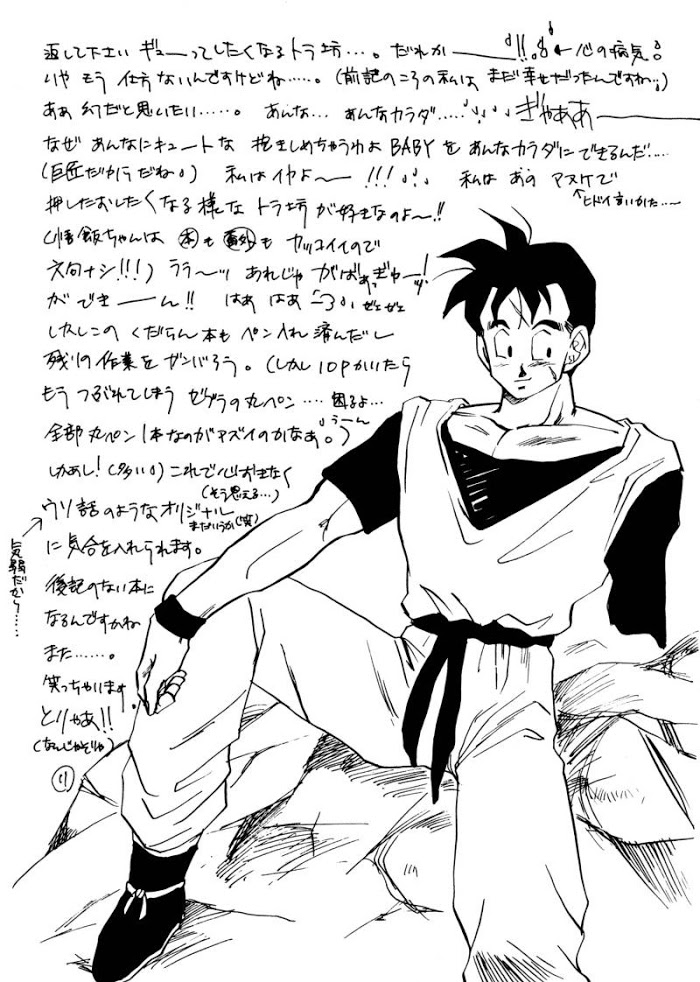 返して下さい ギューってしたくなるトラ坊…。だれか――!! ←心の病気
りゃ もう 仕方ないんですけどね……。(前記のころの私は まだ幸せだったんですね。)
ああ 幻だと思いたい……。 あんな… あんなカラダ…… ぎゃああ――
なぜ あんなにキュートな 抱きしめちゃうわよ BABY を あんなカラダにできるんだ……
(巨匠だからだね。) 私は イヤよ〜――!!! 私は あの マスクで
↑ヒドイ言いかた…〜
押したおしたくなる様な トラ坊が 好きなのよ〜!!
(悟飯ちゃんは 本も 番外も カッコイイので
文句ナシ!!!) ララ〜ッ あれじゃ がばあっ ぎゅー!
ができ――ん!! はあ はあ ぜえぜえ
しかしこの くだらん 本も ペン入れ 済んだし
残りの作業を ガンバろう。(しかし 10P かいたら
もう つぶれてしまう ゼブラの丸ペン…… 困るよ…
全部 丸ペン 1本なのが マズイのかなあ。うーん)
しかあし!(多い。) これで心おきなく
(そう思える…)
ウソ話のようなオリジナル
まだいうか(笑)
に気合を入れられます。
気弱だから……
後記のない本に
なるんですかね
また……。
笑っちゃいます。
とりゃあ!!
(なんじゃそりゃ)